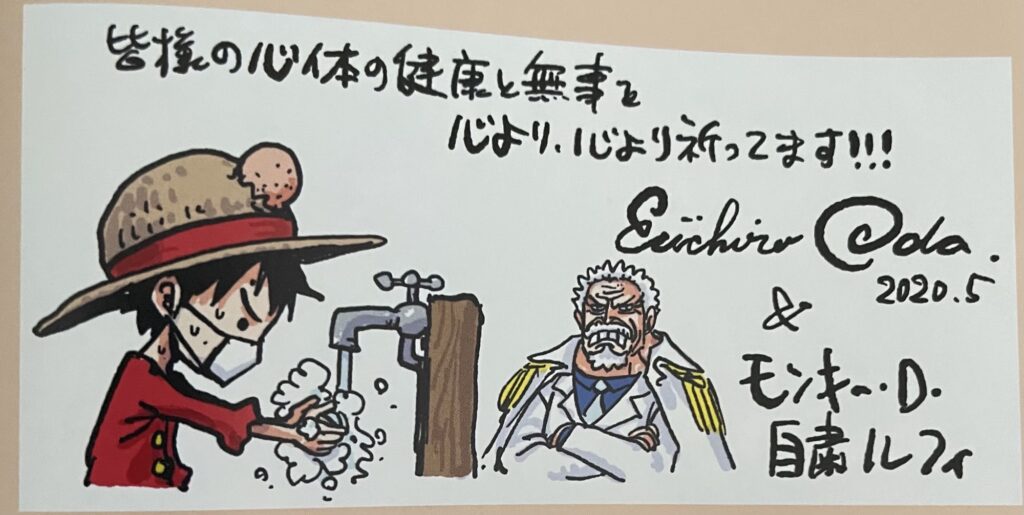 皆様の心体の健康と無事を
心より、心より祈ってます!!!
Eiichiro Oda.
2020.5
&
モンキー・D・
自粛ルフィ